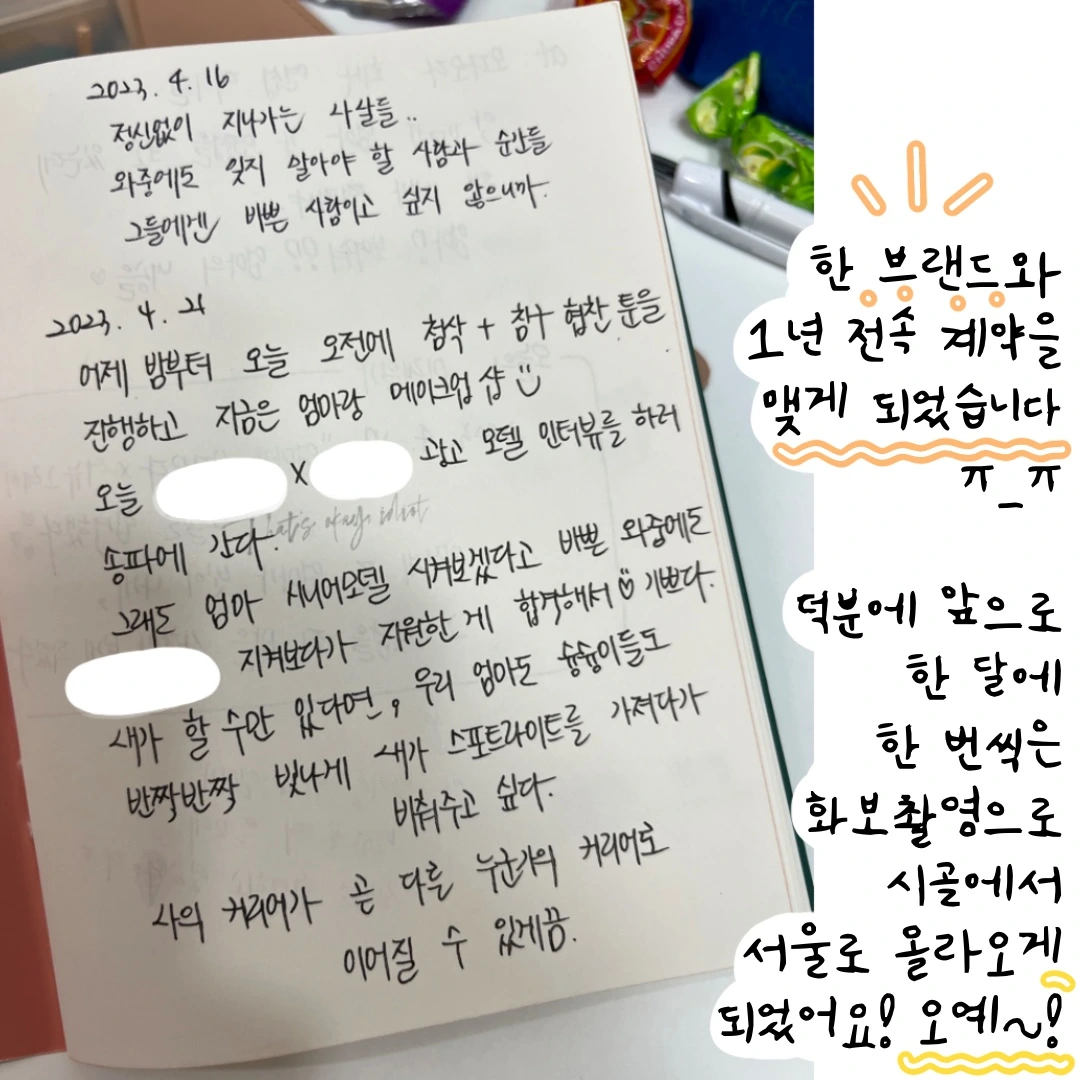 2023. 4. 16
정신없이 지나가는 나날들..
와중에도 잊지 말아야 할 사람과 순간들
그들에겐 바쁜 사람이고 싶지 않으니까.
2023. 4. 21
어제 밤부터 오늘 오전에 첨삭 + 협찬 툰을
진행하고 지금은 엄마랑 메이크업 샵
오늘 X 광고 모델 인터뷰를 하러
송파에 간다.
that's okay, idiot
그래도 엄마 시니어모델 시켜보겠다고 바쁜 와중에도
지켜보다가 지원한 게 합격해서 기쁘다.
내가 할 수만 있다면, 우리 엄마도 슝슝이들도
반짝반짝 빛나게 내가 스포트라이트를 가져다가
비춰주고 싶다.
나의 커리어가 곧 다른 누군가의 커리어로
이어질 수 있게끔.
한 브랜드와
1년 전속 계약을
맺게 되었습니다
ㅠ_ㅠ
덕분에 앞으로
한 달에
한 번씩은
화보촬영으로
시골에서
서울로 올라오게
되었어요! 오예~!